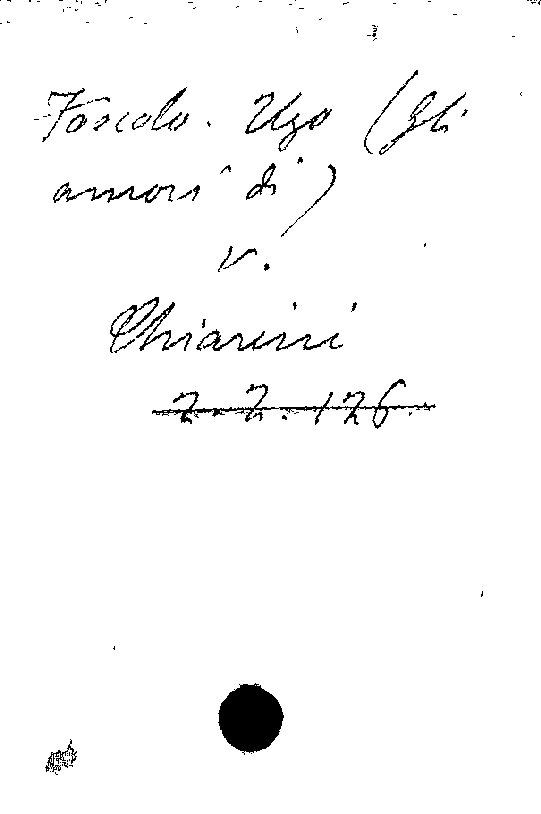 Foscolo. Ugo (Gli
amori di)
v.
Chiarini
2.2.126.